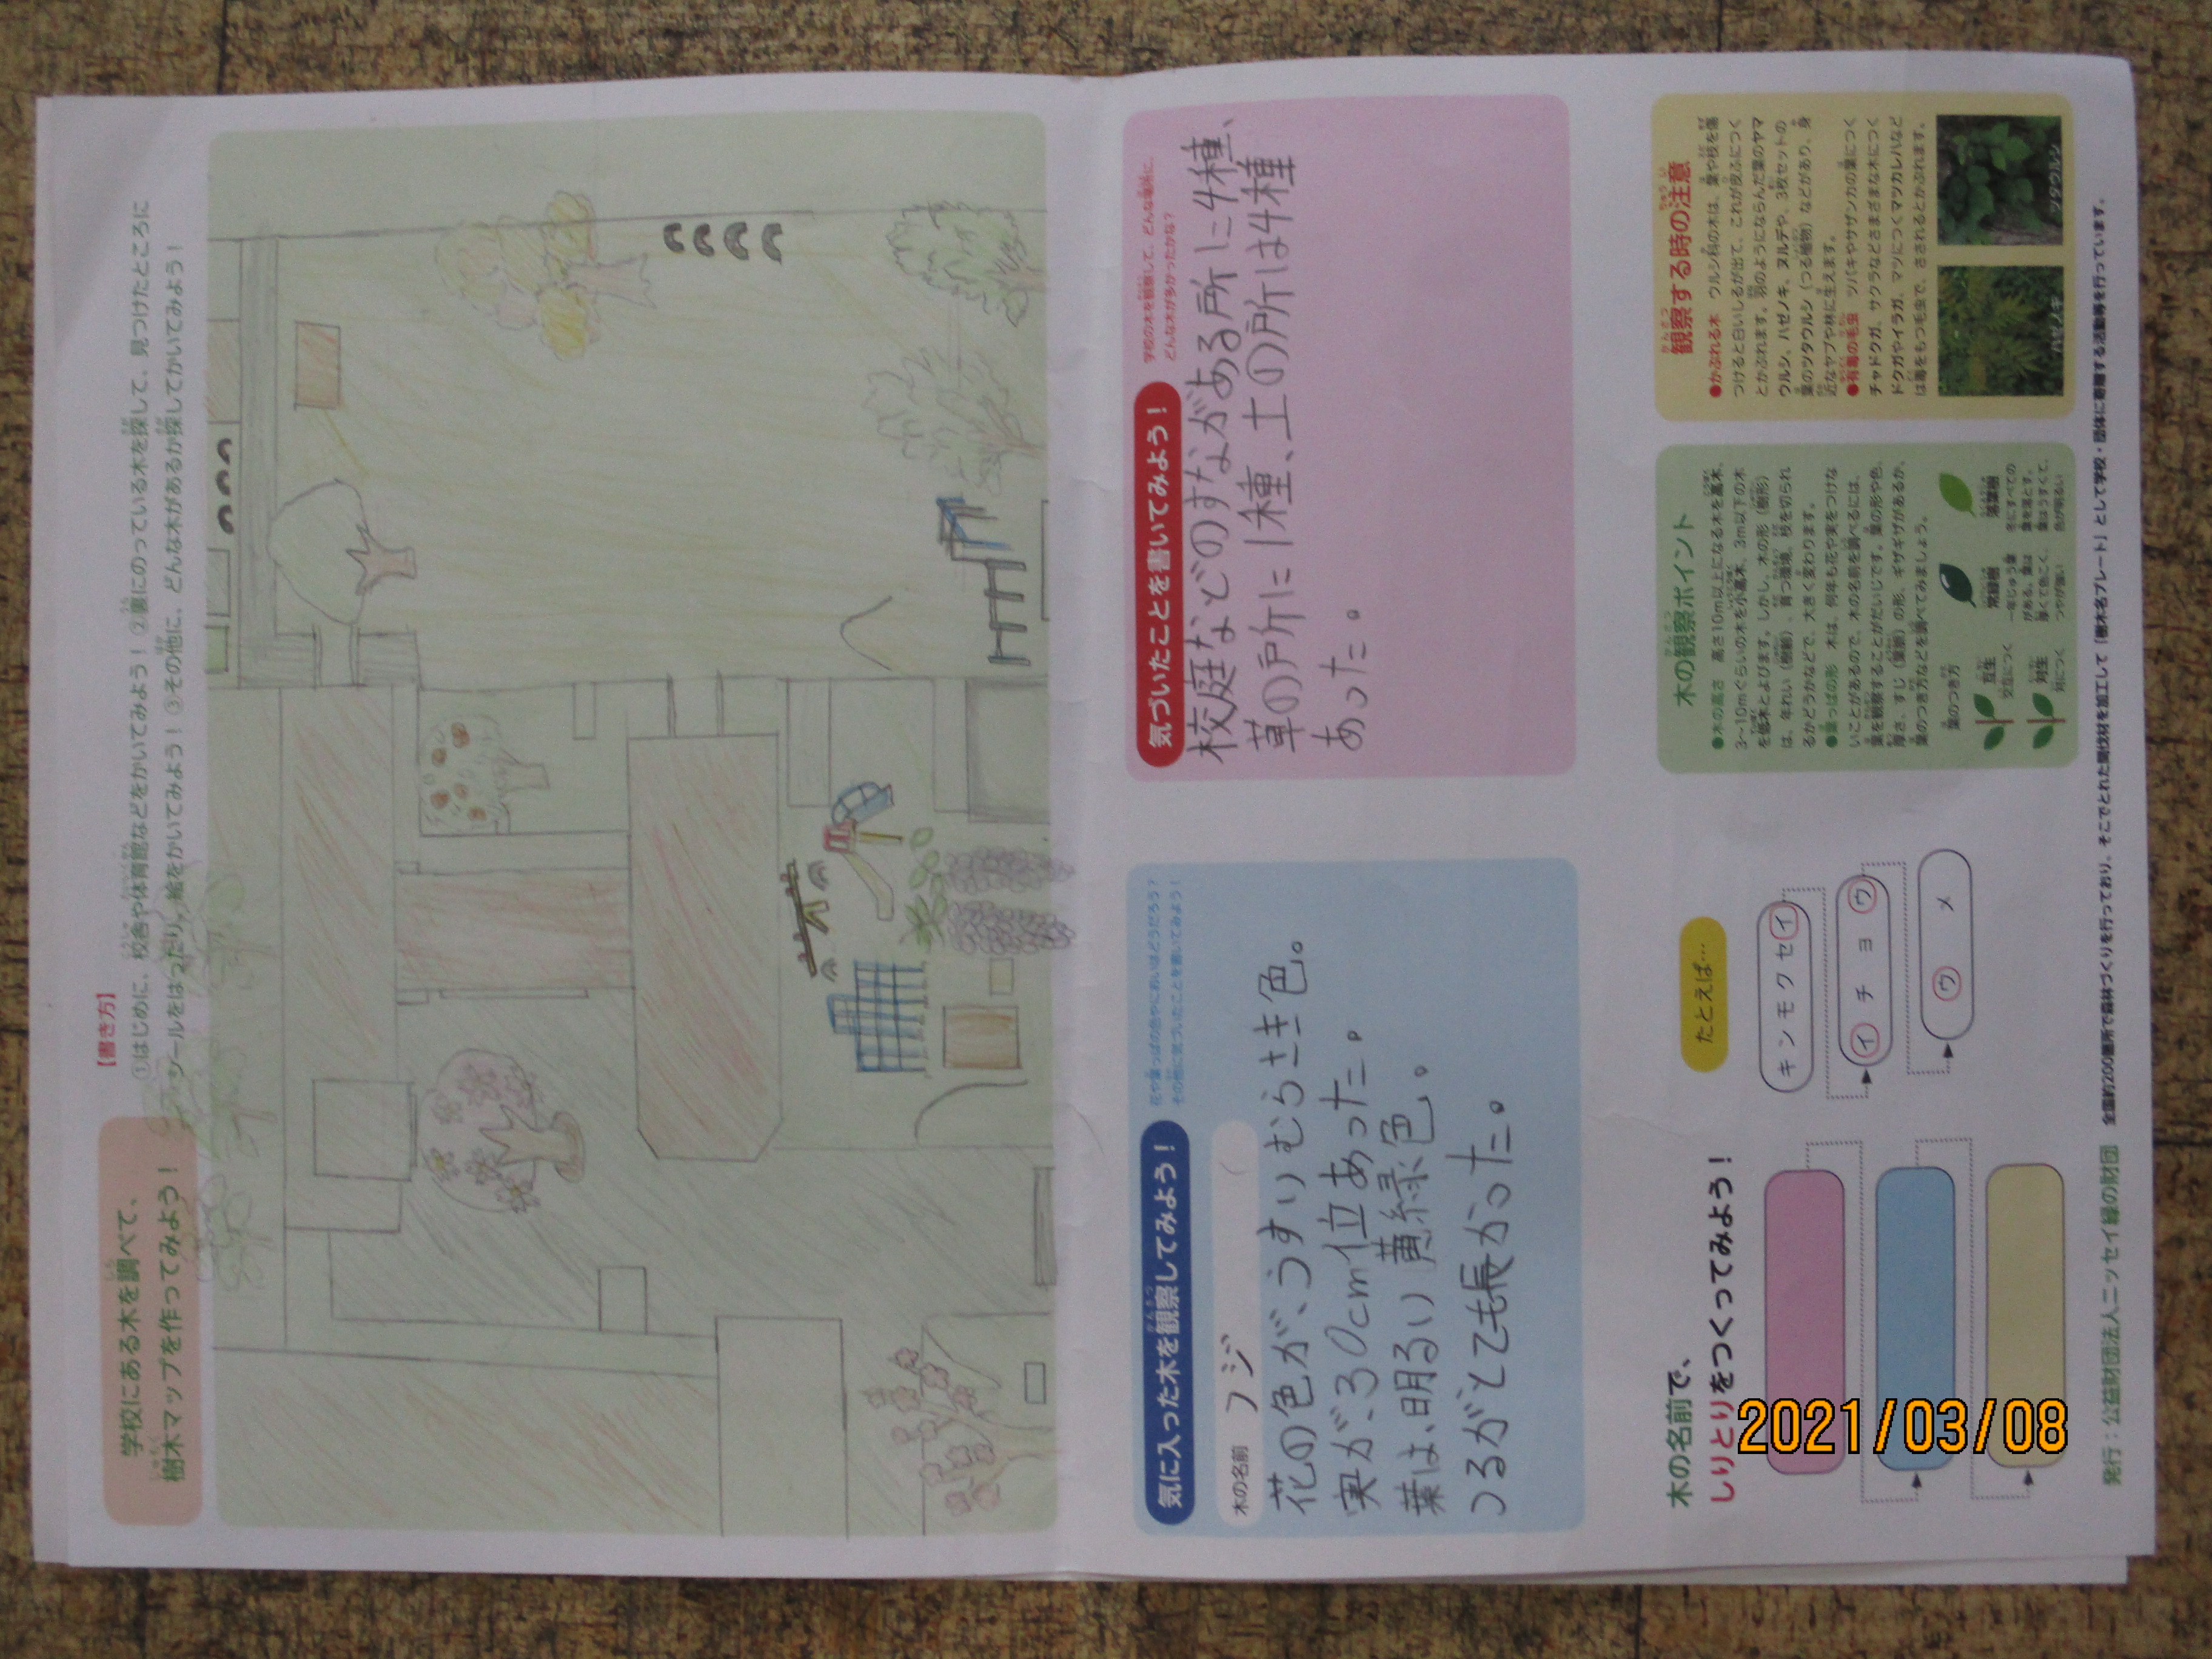 学校にある木を調べて、
樹木マップを作ってみよう！
【書き方】
①はじめに、校舎や体育館などをかいてみよう！ ②裏にのっている木を探して、見つけたところに
シールをはったり、絵をかいてみよう！ ③その他に、どんな木があるか探してかいてみよう！
気に入った木を観察してみよう！
花や葉っぱの色やにおいはどうだろう？
その他に気づいたことを書いてみよう！
木の名前 フジ
花の色が、うすいむらさき色。
実が、30cm位あった。
葉は、明るい黄緑色。
つるがとても長かった。
気づいたことを書いてみよう！
学校の木を観察して、どんな場所に、
どんな木が多かったかな？
校庭などのすながある所に4種、
草の所に1種、土の所は4種
あった。
木の名前で、
しりとりをつくってみよう！
たとえば…
キンモクセイ
イチョウ
ウメ
木の観察ポイント
●木の高さ 高さ10m以上になる木を高木、
3〜10mぐらいの木を小高木、3m以下の木
を低木とよびます。しかし、木の形（樹形）
は、年れい（樹齢）、育つ環境、枝を切られ
るかどうかなどで、大きく変わります。
●葉っぱの形 木は、何年も花や実をつけな
いことがあるので、木の名前を調べるには、
葉を観察することがだいじです。葉の形や色、
厚さ、すじ（葉脈）の形、ギザギザがあるか、
葉のつき方などを調べてみましょう。
葉のつき方
互生
交互につく
対生
対につく
常緑樹
一年じゅう葉
がある。葉は
厚くて色こく、
つやが強い
落葉樹
冬にすべての
葉を落とす。
葉はうすくて、
色が明るい
観察する時の注意
●かぶれる木 ウルシ科の木は、葉や枝を傷
つけると白いしるが出て、これが皮ふにつく
とかぶれます。羽のようにならんだ葉のヤマ
ウルシ、ハゼノキ、ヌルデや、3枚セットの
葉のツタウルシ（つる植物）などがあり、身
近なヤブや林に生えます。
●有毒の毛虫 ツバキやサザンカの葉につく
チャドクガ、サクラなどさまざまな木につく
ドクガやイラガ、マツにつくマツカレハなど
は毒をもつ毛虫で、さされるとかぶれます。
ハゼノキ
ツタウルシ
発行：公益財団法人ニッセイ緑の財団 全国約200箇所で森林づくりを行っており、そこでとれた間伐材を加工して「樹木名プレート」として学校・団体に寄贈する活動等を行っています。
2021/03/08